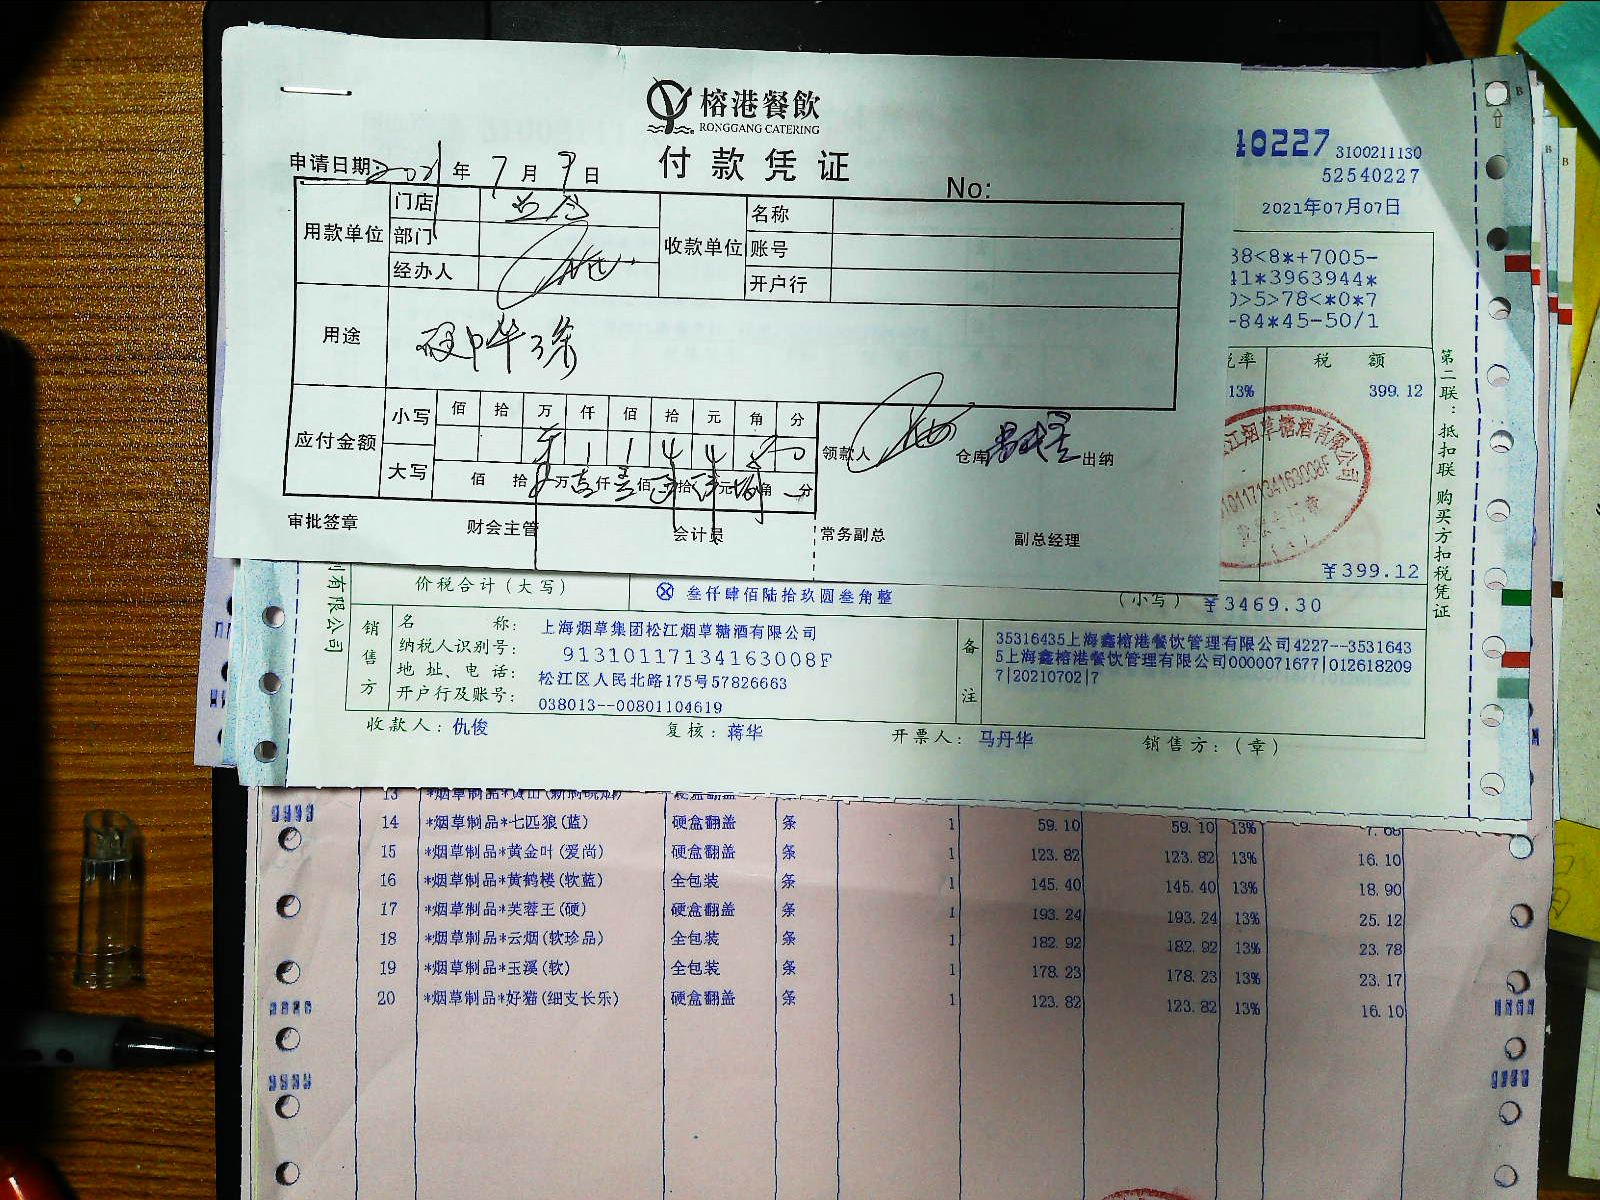 榕港餐飲
RONGGANG CATERING
付款凭证
申请日期: 2021 年 7 月 7 日
No:
用款单位
门店
部门
经办人
收款单位
名称
账号
开户行
用途
硬中华3条
应付金额
小写
佰 拾 万 仟 佰 拾 元 角 分
大写
佰 拾 万 仟 佰 拾 元 角 分
领款人
仓库
出纳
审批签章
财会主管
会计员
常务副总
副总经理
40227 3100211130
52540227
2021年07月07日
38<8*+7005-
41*3963944*
0>5>78<*0*7
-84*45-50/1
税率 税 额
13% 399.12
江烟草糖酒有限公司
10117134163008F
¥399.12
第二联：抵扣联 购买方扣税凭证
有限公司
价税合计(大写)
叁仟肆佰陆拾玖圆叁角整
(小写) ¥3469.30
销售方
名 称: 上海烟草集团松江烟草糖酒有限公司
纳税人识别号: 91310117134163008F
地址、电话: 松江区人民北路175号57826663
开户行及账号: 038013--00801104619
备注
35316435上海鑫榕港餐饮管理有限公司4227--3531643
5上海鑫榕港餐饮管理有限公司0000071677|012618209
7|20210702|7
收款人: 仇俊
复核: 蒋华
开票人: 马丹华
销售方: (章)
13
14 *烟草制品*七匹狼(蓝) 硬盒翻盖 条 1 59.10 59.10 13% 7.68
15 *烟草制品*黄金叶(爱尚) 硬盒翻盖 条 1 123.82 123.82 13% 16.10
16 *烟草制品*黄鹤楼(软蓝) 全包装 条 1 145.40 145.40 13% 18.90
17 *烟草制品*芙蓉王(硬) 硬盒翻盖 条 1 193.24 193.24 13% 25.12
18 *烟草制品*云烟(软珍品) 全包装 条 1 182.92 182.92 13% 23.78
19 *烟草制品*玉溪(软) 全包装 条 1 178.23 178.23 13% 23.17
20 *烟草制品*好猫(细支长乐) 硬盒翻盖 条 1 123.82 123.82 13% 16.10